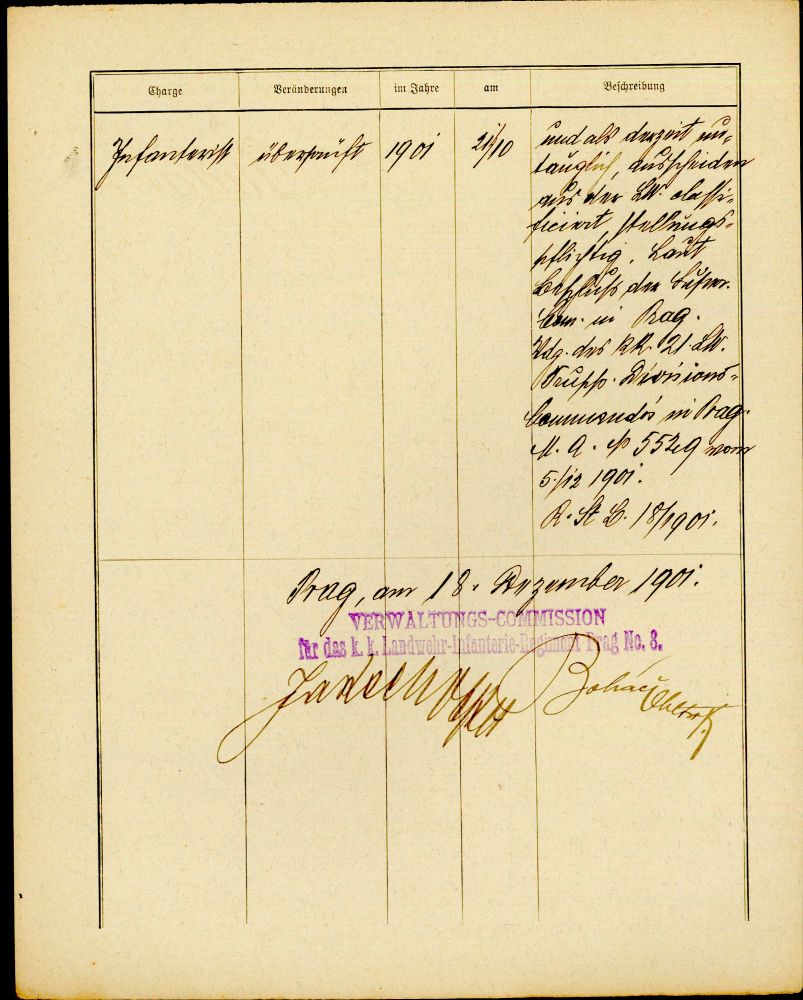 Charge Veränderungen im Jahre am Beschreibung
Infanterist überprüft 1901 21/10 und als derzeit un-
tauglich, ausscheiden
aus der LW. classi-
ficiert, stellungs-
pflichtig. Laut
Beschluss der Super.
Com. in Prag.
Vdg. des k.k. 21. LW.
Trupp. Divisions-
Commandos in Prag.
M. A. № 5529 vom
5./12 1901.
R. St B. 18/1901.
Prag, am 18. Dezember 1901.
VERWALTUNGS-COMMISSION
für das k. k. Landwehr-Infanterie-Regiment Prag No. 8.